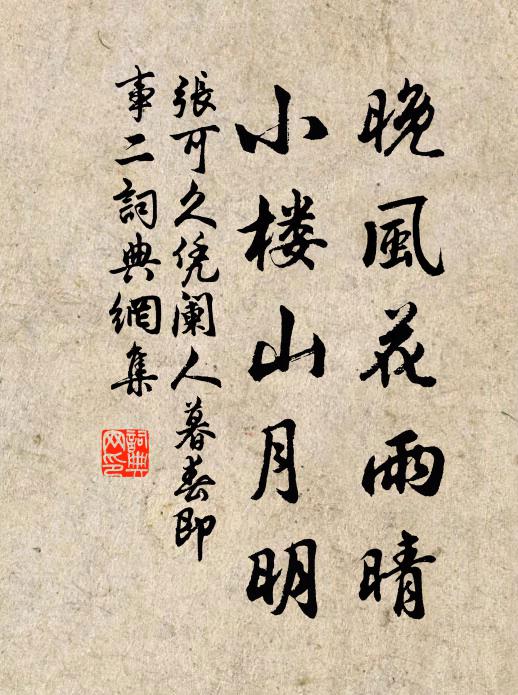 晚風花雨晴
小楼山月明
張可久凭阑人暮春即
事二詞典網集
詞典
网印